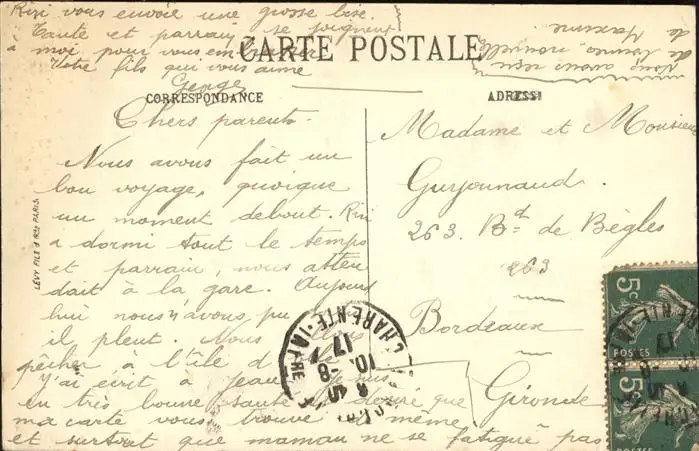 CARTE POSTALE
CORRESPONDANCE
Chers parents.
Nous avons fait un
bon voyage, quoique
un moment debout. Riri
a dormi tout le temps
et parrain, nous atten
dait à la gare. Aujourd
hui nous n'avons pu
il pleut. Nous
pêcher à l'île d
J'ai écrit à Jean
en très bonne santé désire que
ma carte vous trouve de même
et surtout que maman ne se fatigue pas
Riri vous envoie une grosse bise.
Tante et parrain se joignent
à moi pour vous embrasser
Votre fils qui vous aime
George
nous avons reçu
de bonnes nouvelles
de Maxence
ADRESSE
Madame et Monsieur
Guyonnaud.
263. Bd de Bègles
263
Bordeaux
Gironde
LÉVY FILS & Cie PARIS.
CHARENTE-INFRE
17
10.-8
5c
POSTES
5c
POSTES